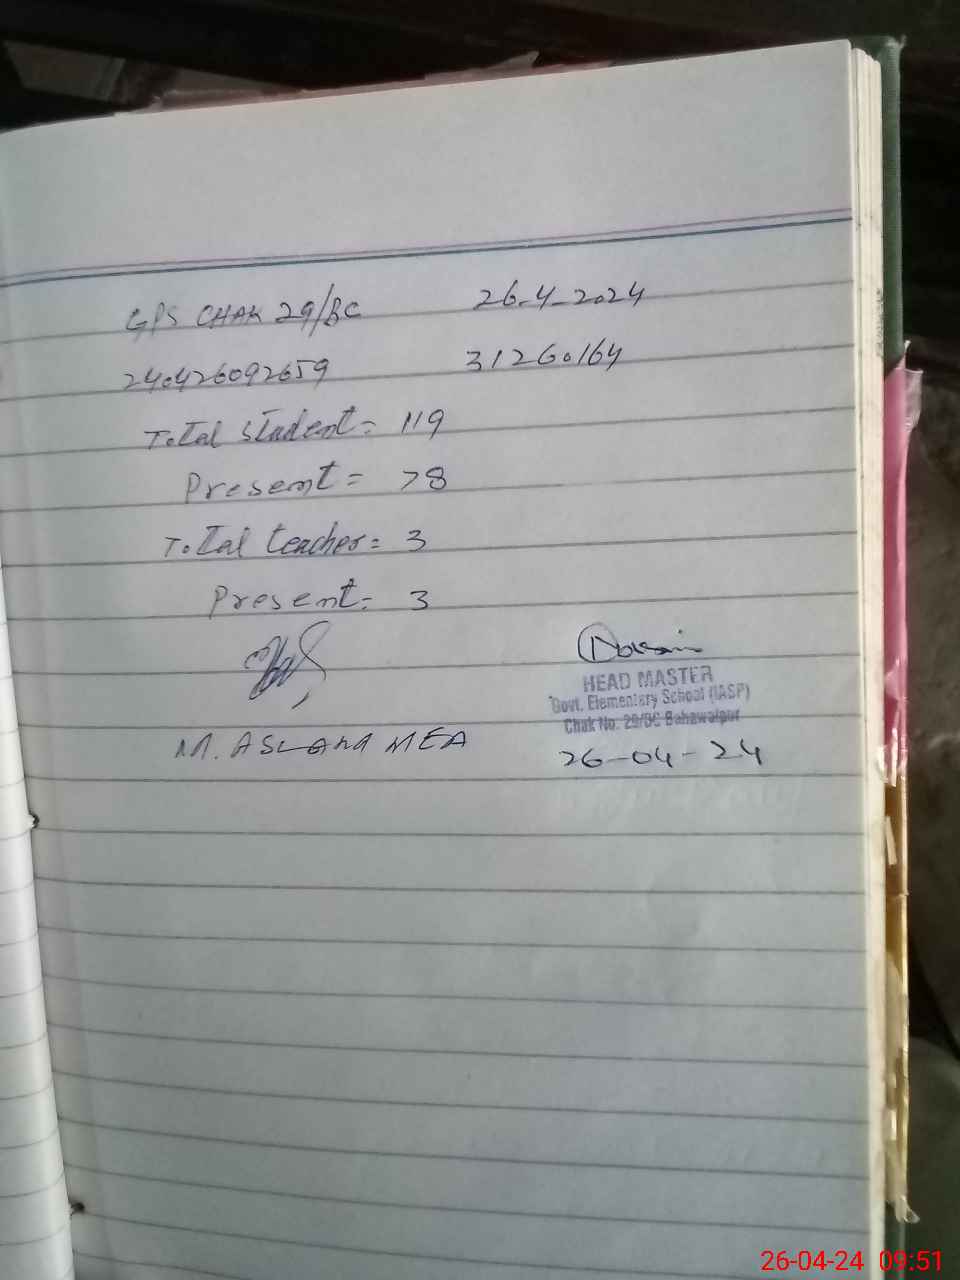 GPS CHAK 29/BC 26-4-2024
240426092659 31260164
Total student = 119
Present = 78
Total teacher = 3
Present = 3
HEAD MASTER
Govt. Elementary School (IASP)
Chak No. 29/BC Bahawalpur
M. ASLAM MEA 26-04-24
26-04-24 09:51